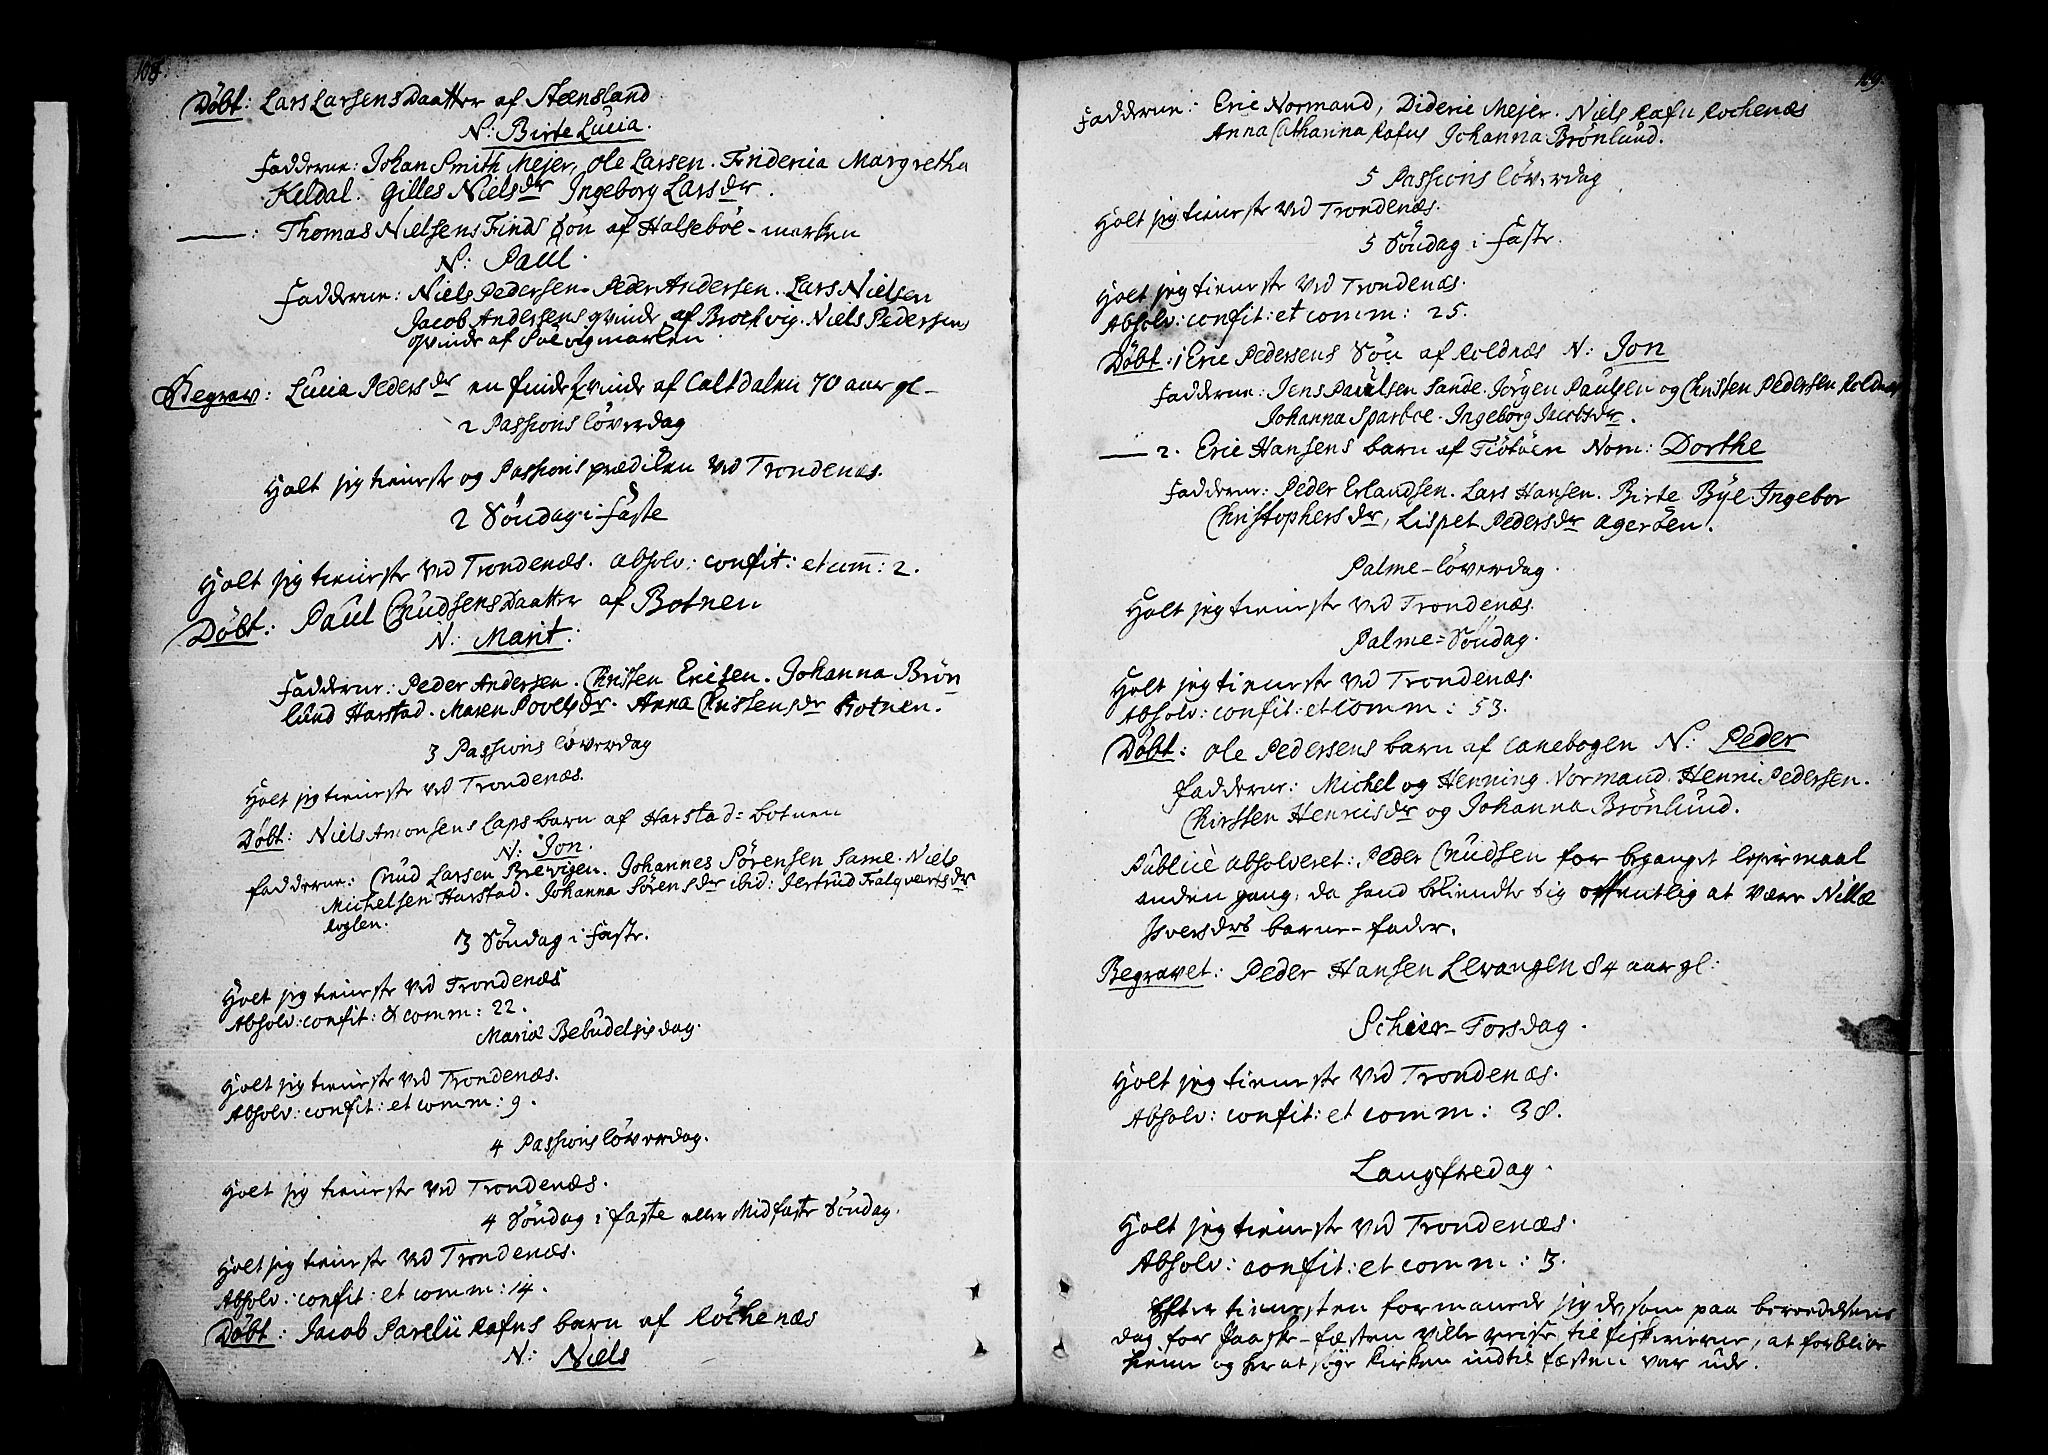 108.
Döbt: Lars Larsens Daatter af Steensland
N: Birte Lucia.
Fadderne: Johan Smith Mejer, Ole Larsen. Fridericia Margretha
Keldal. Gilles Nielsdr Ingeborg Larsdr.
——: Thomas Nielsens Finds Sön af Halseböe-marken
N: Paul.
Fadderne: Niels Pedersen. Peder Andersen. Lars Nielsen
Jacob Andersens qvinde af Brochvig. Niels Pedersens
qvinde af Solvigmarken.
Begrav: Lucia Pedersdr en finde qvinde af Caltdalen 70 aar gl-
2 Passions löverdag
Holt jeg tieneste og Passions prædiken ved Trondenæs.
2 Söndag i Faste
Holt jeg tieneste ved Trondenæs. absolv: confit: et com: 2.
Döbt: Paul Cnudsens Daatter af Botnen
N: Marit.
Fadderne: Peder Andersen. Christen Ericsen. Johanna Brön
lund Harstad. Maren Povelsdr. Anna Christensdr Botnen.
3 Passions löverdag
Holt jeg tieneste ved Trondenæs.
Döbt: Niels Amonsens Laps barn af Harstad-botnen
N: Jon.
Fadderne: Cnud Larsen Brevigen. Johannes Sörensen Same. Niels
Michelsen Harstad. Johanna Sörensdr ibid: Jertrud Falqvertsdr
Roglen.
3 Söndag i Faste.
Holt jeg tieneste ved Trondenæs
Absolv: confit: & comm: 22.
Mariæ Bebudelsis dag.
Holt jeg tieneste ved Trondenæs.
Absolv: confit: et comm: 9.
4 Passions löverdag.
Holt jeg tieneste ved Trondenæs.
4 Söndag i faste eller Midfaste Söndag.
Holt jeg tieneste ved Trondenæs.
Absolv: confit: et comm: 14.
Döbt: Jacob Parelii Rafns barn af Röchenæs
N: Niels
109.
Fadderne: Eric Normand, Dideric Mejer. Niels Rafn Rochenæs
Anna Catharina Rafns Johanna Brönlund.
5 Passions löverdag
Holt jeg tieneste ved Trondenæs.
5 Söndag i Faste.
Holt jeg tieneste ved Trondenæs.
Absolv: confit: et comm: 25.
Döbt: 1 Eric Pedersens Sön af Roldnæs N: Jon
Fadderne: Jens Paulsen Sande. Jörgen Paulsen og Christen Pedersen Roldnæs
Johanna Sparboe. Ingeborg Jacobsdr.
—— 2. Eric Hansens barn af Tiötöen Nom: Dorthe
Fadderne: Peder Erlandsen. Lars Hansen. Birte Bye. Ingebor
Christophersdr, Lispet Pedersdr Ageröen.
Palme-löverdag.
Holt jeg tieneste ved Trondenæs.
Palme-Söndag.
Holt jeg tieneste ved Trondenæs.
Absolv: confit: et comm: 53.
Döbt: Ole Pedersens barn af Canebogen N: Peder
Fadderne: Michel og Henning Normand. Henric Pedersen.
Chirsten Henricsdr og Johanna Brönlund.
Publicè absolveret: Peder Cnudsen for begaaet lejermaal
anden gang, da hand bekiendte sig offentlig at være Nillæ
Iversdrs barne-fader.
Begravet: Peder Hansen Levangen 84 aar gl:
Schier-Torsdag.
Holt jeg tieneste ved Trondenæs.
Absolv: confit: et comm: 38.
Langfredag.
Holt jeg tieneste ved Trondenæs.
Absolv: confit: et comm: 3.
Efter tienesten formanede jeg de som paa beredelsens
dag for Paaske-fæsten ville rejse til fiskerierne, at forblive
hieme og her at söge kirken indtil fæsten var ude.